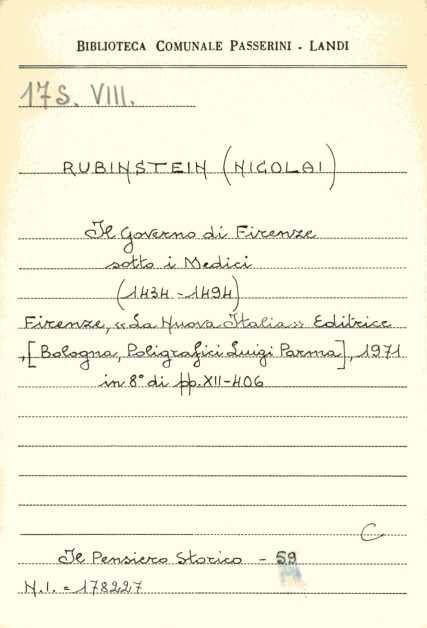 BIBLIOTECA COMUNALE PASSERINI - LANDI
17S. VIII.
RUBINSTEIN (NICOLAI)
Il Governo di Firenze
sotto i Medici
(1434-1494)
Firenze, «La Nuova Italia» Editrice
,[Bologna, Poligrafici Luigi Parma], 1971
in 8° di pp. XII-406
C
Il Pensiero Storico - 59
N.I. = 178227